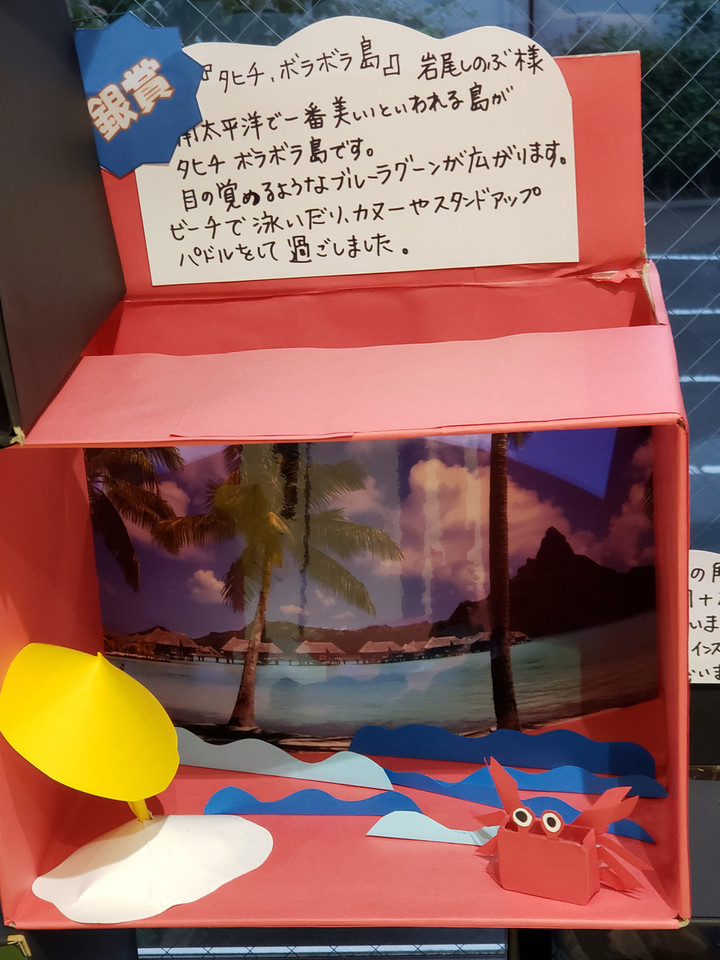 銀賞
『タヒチ、ボラボラ島』 岩尾しのぶ様
南太平洋で一番美しいといわれる島が
タヒチ ボラボラ島です。
目の覚めるようなブルーラグーンが広がります。
ビーチで泳いだり、カヌーやスタンドアップ
パドルをして過ごしました。
いま
インス